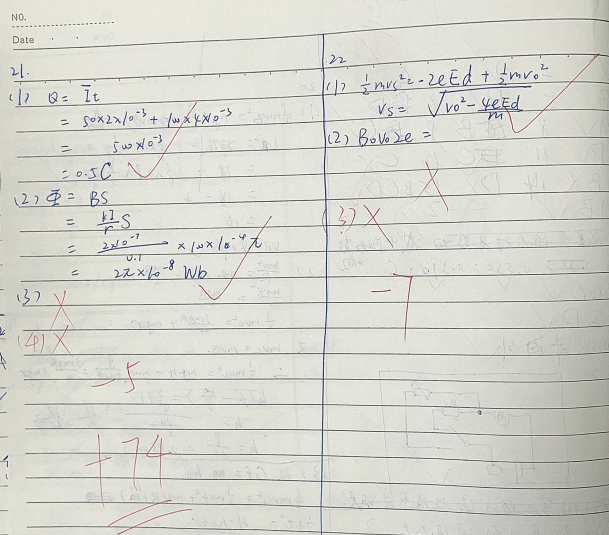 NO.
Date
21.
(1) Q = I̅t
= 50×2×10⁻³ + 100×4×10⁻³
= 500×10⁻³
= 0.5C
(2) Φ = BS
= kI/r S
= 2×10⁻⁷/0.1 × 100×10⁻⁴π
= 2π×10⁻⁸ Wb
(3)
(4)
-5
+74
22
(1) ½mvs² = -2eEd + ½mv₀²
vs = √(v₀² - 4eEd/m)
(2) B₀v₀2e =
(3)
-7